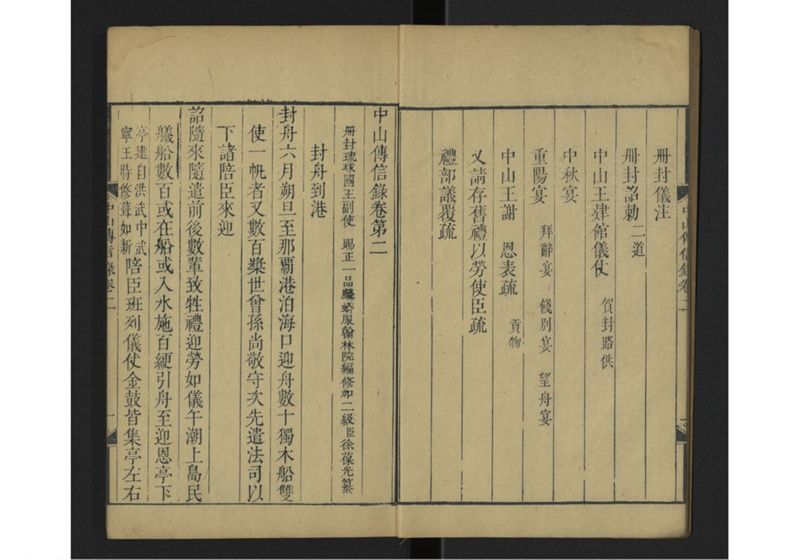 册封儀注
册封詔勅 二道
中山王肄館儀仗 賀封路供
中秋宴
重陽宴 拜辭宴 餞別宴 望舟宴
中山王謝 恩表疏 貢物
又請存舊禮以勞使臣疏
禮部議覆疏
中山傳信錄卷二
中山傳信錄卷第二
册封琉球國王副使 賜正一品麟蟒服翰林院編修加二級臣徐葆光纂
封舟到港
封舟六月朔旦至那覇港泊海口迎舟數十獨木船雙
使一帆者又數百槳世曾孫尚敬守次先遣法司以
下諸陪臣來迎
詔隨來隨遣前後數輩致牲禮迎勞如儀午潮上島民
艤船數百或在船或入水施百綆引舟至迎恩亭下
亭建自洪武中武
寧王時修葺如新 陪臣班列儀仗金鼓皆集亭左右
中山傳信錄卷二
一